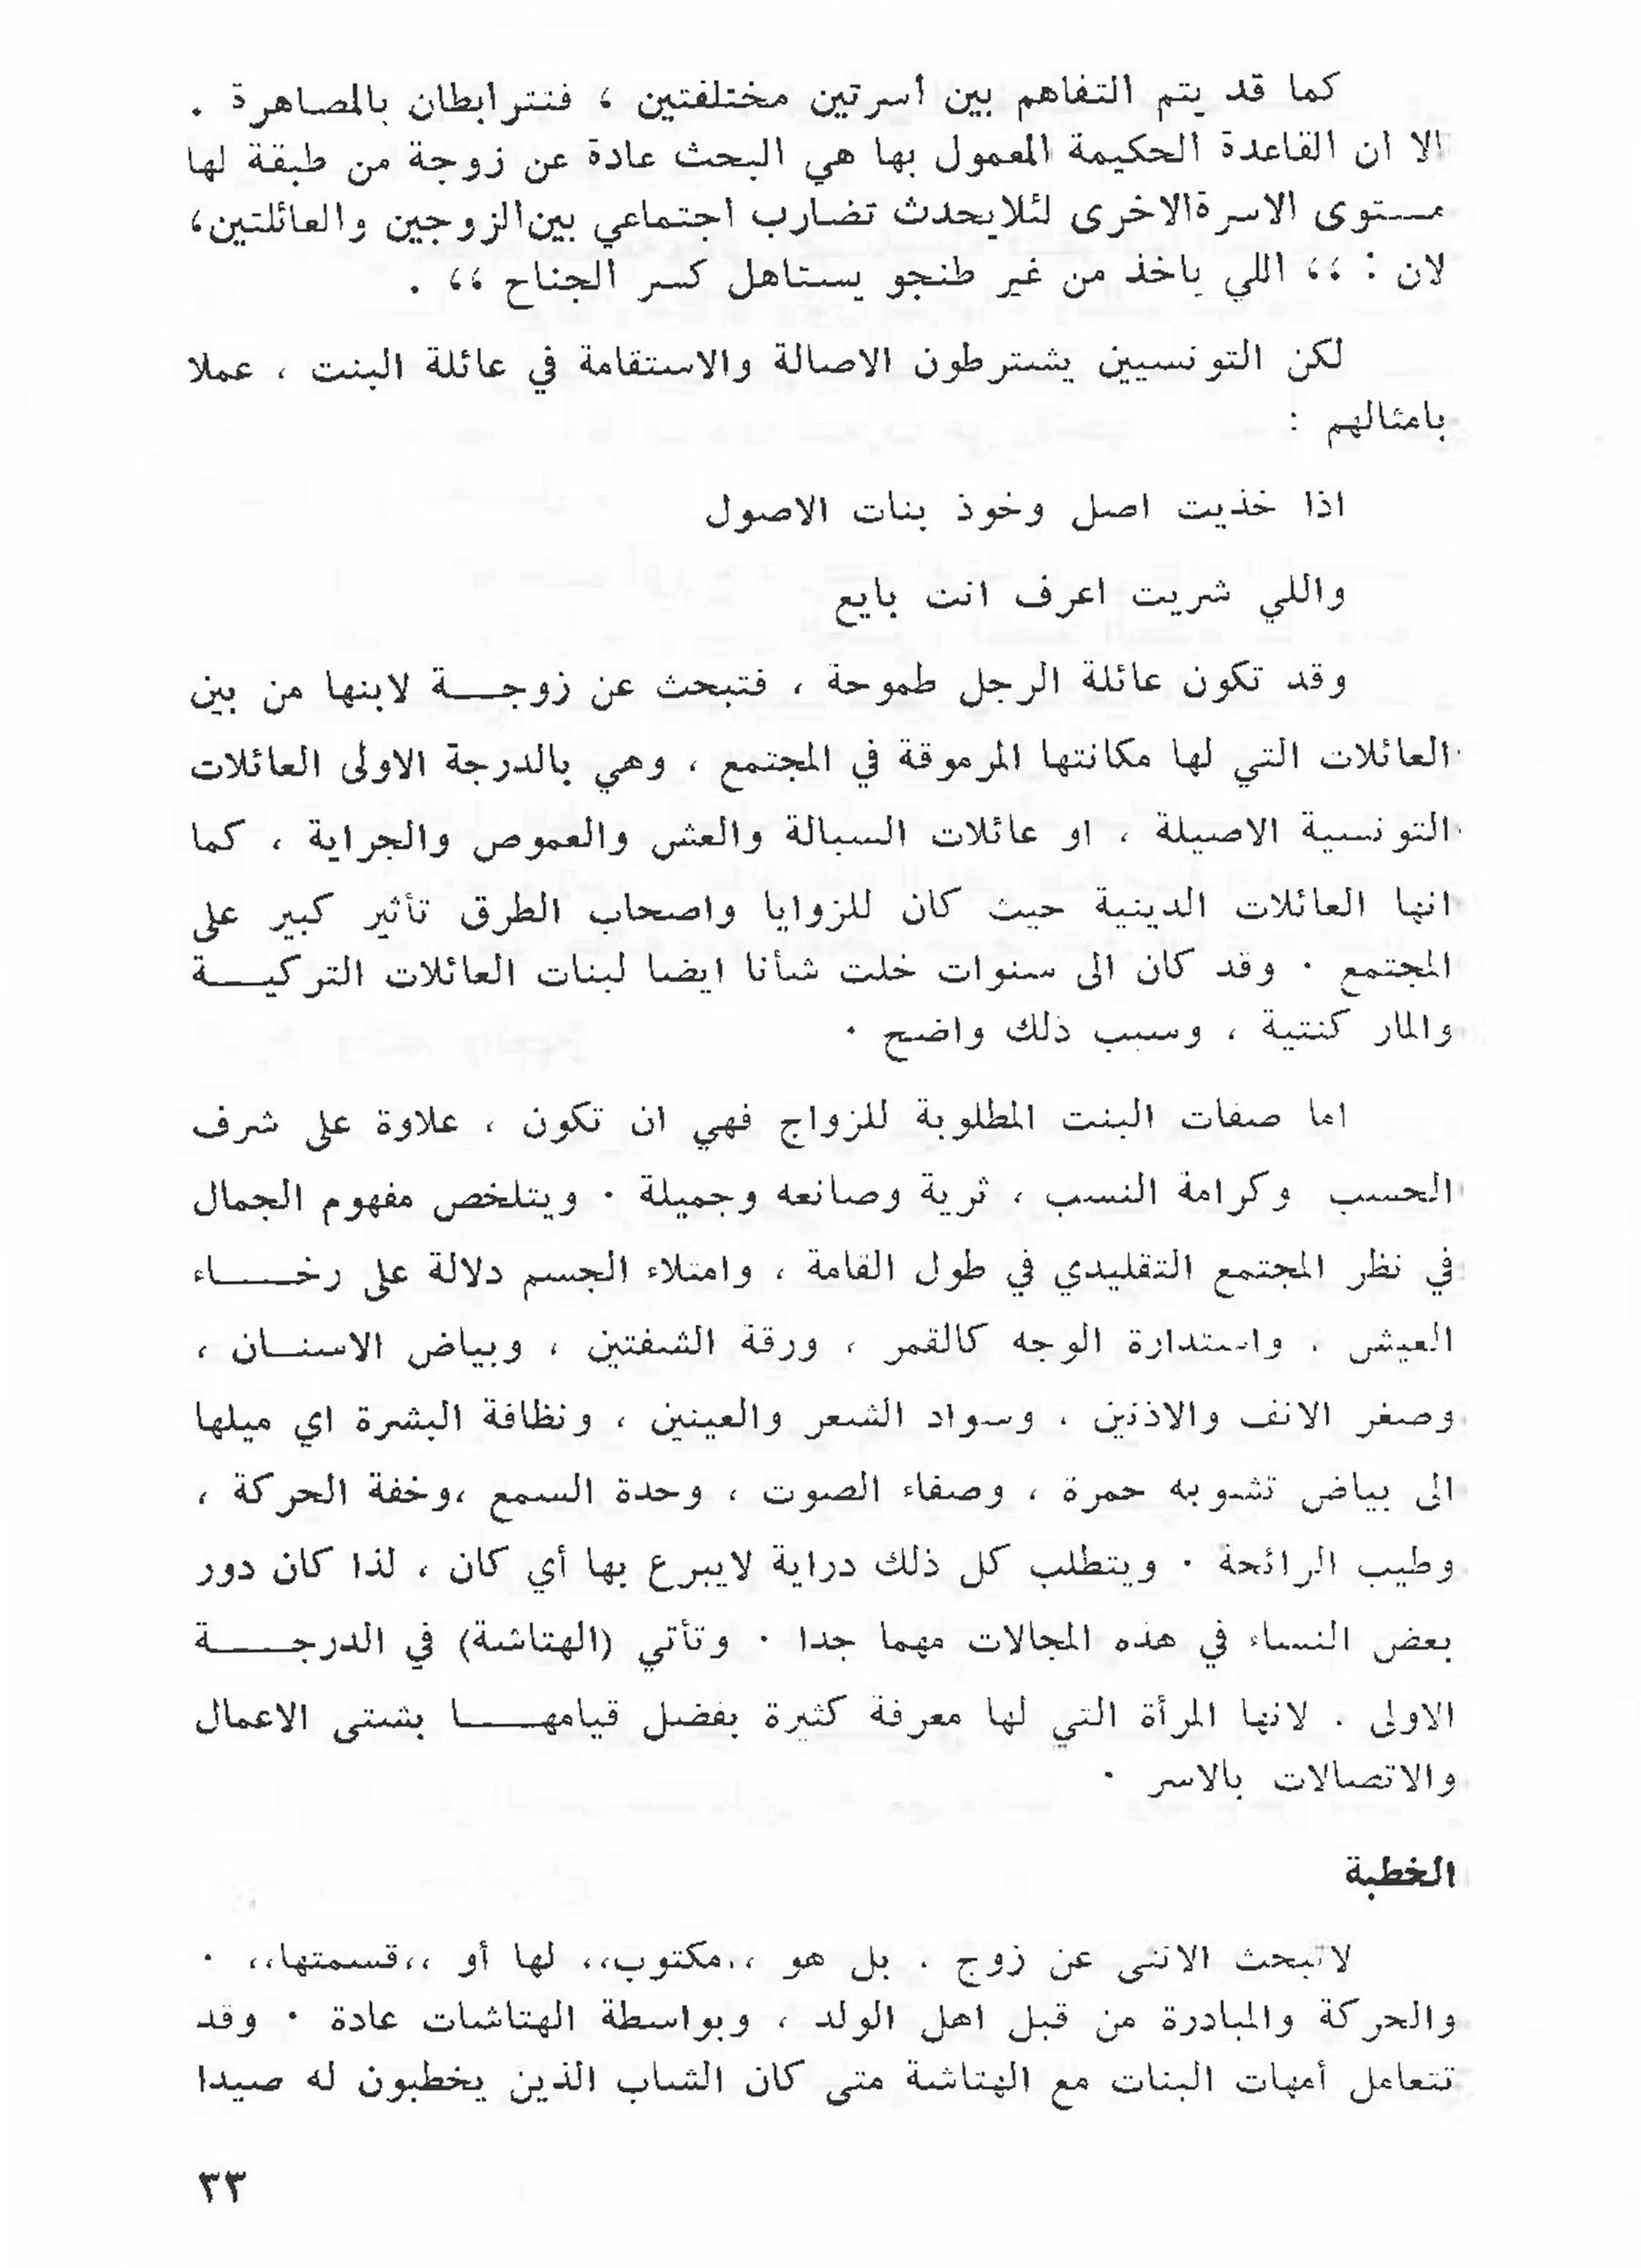 كما قد يتم التفاهم بين أسرتين مختلفتين ، فتترابطان بالمصاهرة .
الا ان القاعدة الحكيمة المعمول بها هي البحث عادة عن زوجة من طبقة لها
مستوى الاسرة الاخرى لئلا يحدث تضارب اجتماعي بين الزوجين والعائلتين،
لان : ،، اللي ياخذ من غير طنجو يستاهل كسر الجناح ،، .
لكن التونسيين يشترطون الاصالة والاستقامة في عائلة البنت ، عملا
بامثالهم :
اذا خذيت اصل وخوذ بنات الاصول
واللي شريت اعرف انت بايع
وقد تكون عائلة الرجل طموحة ، فتبحث عن زوجـــة لابنها من بين
العائلات التي لها مكانتها المرموقة في المجتمع ، وهي بالدرجة الاولى العائلات
التونسية الاصيلة ، او عائلات السبالة والعش والعموص والجراية ، كما
انها العائلات الدينية حيث كان للزوايا واصحاب الطرق تأثير كبير على
المجتمع . وقد كان الى سنوات خلت شأنا ايضا لبنات العائلات التركيـــة
والماركنتية ، وسبب ذلك واضح .
اما صفات البنت المطلوبة للزواج فهي ان تكون ، علاوة على شرف
الحسب وكرامة النسب ، ثرية وصانعه وجميلة . ويتلخص مفهوم الجمال
في نظر المجتمع التقليدي في طول القامة ، وامتلاء الجسم دلالة على رخـــاء
العيش ، واستدارة الوجه كالقمر ، ورقة الشفتين ، وبياض الاسنـان ،
وصغر الانف والاذنين ، وسواد الشعر والعينين ، ونظافة البشرة اي ميلها
الى بياض تشوبه حمرة ، وصفاء الصوت ، وحدة السمع ،وخفة الحركة ،
وطيب الرائحة . ويتطلب كل ذلك دراية لايبرع بها أي كان ، لذا كان دور
بعض النساء في هذه المجالات مهما جدا . وتأتي (الهتاشة) في الدرجـــة
الاولى . لانها المرأة التي لها معرفة كثيرة بفضل قيامهـــا بشتى الاعمال
والاتصالات بالاسر .
الخطبة
لاتبحث الانثى عن زوج . بل هو ،،مكتوب،، لها أو ،،قسمتها،، .
والحركة والمبادرة من قبل اهل الولد ، وبواسطة الهتاشات عادة . وقد
تتعامل أمهات البنات مع الهتاشة متى كان الشاب الذين يخطبون له صيدا
٣٣